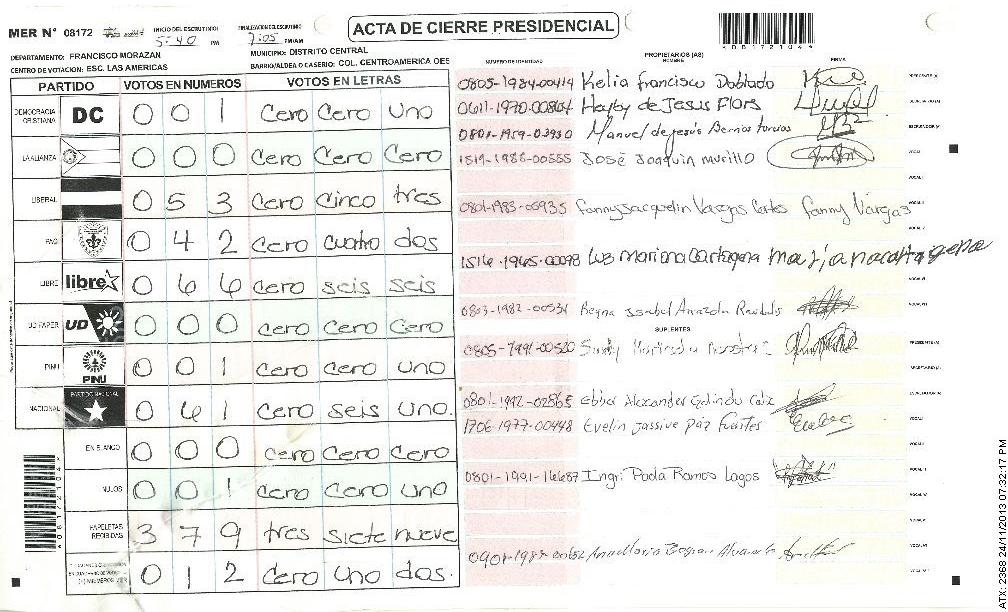 ACTA DE CIERRE PRESIDENCIAL
MER N° 08172
INICIO DEL ESCRUTINIO: 5:40 PM
FINALIZACION DEL ESCRUTINIO 7:05 PM/AM
A081721044
DEPARTAMENTO: FRANCISCO MORAZAN
MUNICIPIO: DISTRITO CENTRAL
CENTRO DE VOTACION: ESC. LAS AMERICAS
BARRIO/ALDEA O CASERIO: COL. CENTROAMERICA OES
PARTIDO VOTOS EN NUMEROS VOTOS EN LETRAS
DEMOCRACIA CRISTIANA DC 0 0 1 cero cero uno
LA ALIANZA 0 0 0 cero cero cero
LIBERAL 0 5 3 cero cinco tres
PAC 0 4 2 cero cuatro dos
LIBRE libre 0 6 6 cero seis seis
UD FAPER UD 0 0 0 cero cero cero
PINU PINU 0 0 1 cero cero uno
NACIONAL PARTIDO NACIONAL 0 6 1 cero seis uno.
EN BLANCO 0 0 0 cero cero cero
NULOS 0 0 1 cero cero uno
PAPELETAS RECIBIDAS 3 7 9 tres siete nueve
0 1 2 cero uno dos.
A081721044
NUMERO DE IDENTIDAD PROPIETARIOS (AS) NOMBRE FIRMA
0805-1984-00414 Kelia Francisco Doblado PRESIDENTE (A)
0611-1970-00864 Haby de Jesus Flors SECRETARIO (A)
0801-1959-03930 Manuel de jesús Berrios ESCRUTADOR (A)
1519-1988-00555 José Joaquin murillo VOCAL I
VOCAL II
0801-1983-00935 Fanny Jacquelin Vargas Cortes Fanny Vargas VOCAL III
VOCAL V
1516-1965-00098 Luz Mariana Cartagena
VOCAL VI
0803-1982-00534 Reyna Isabel VOCAL VII
SUPLENTES
0805-1991-00520 PRESIDENTE (A)
SECRETARIO (A)
0801-1992-02865 Alexander Galindo ESCRUTADOR (A)
1706-1977-00448 Evelin Jassive paz fuentes VOCAL I
VOCAL II
0801-1991-16687 Ingri Paola Ramos Lagos VOCAL III
VOCAL IV
VOCAL VI
ATX: 2368 24/11/2013 07:32:17 PM